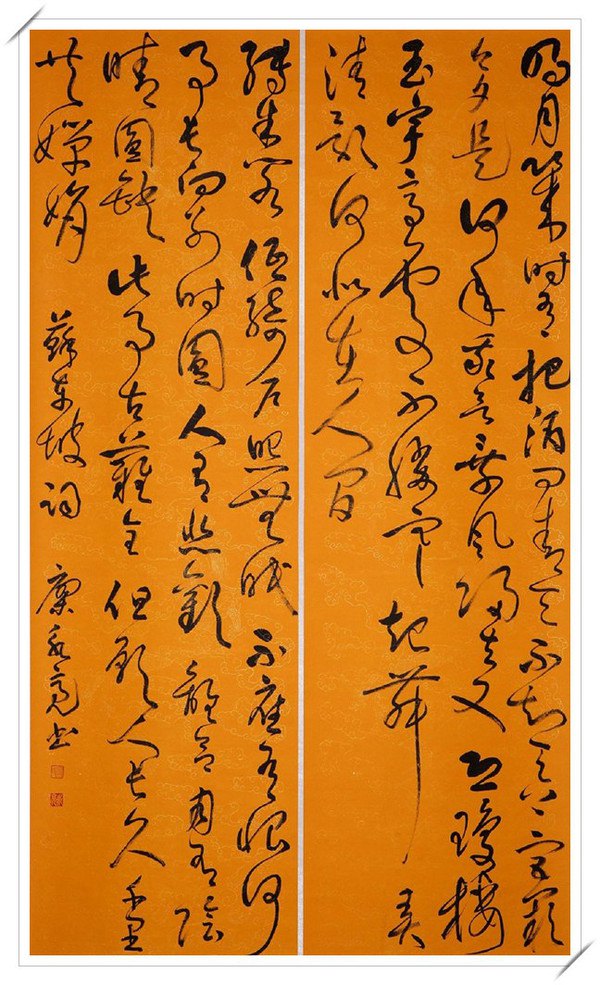 明月幾時有把酒問青天不知天上宮闕
今夕是何年我欲乘風歸去又恐瓊樓
玉宇高處不勝寒起舞弄
清影何似在人間
轉朱閣低綺戶照無眠不應有恨何
事長向別時圓人有悲歡離合月有陰
晴圓缺此事古難全但願人長久千里
共嬋娟 蘇東坡詞 康 亮書